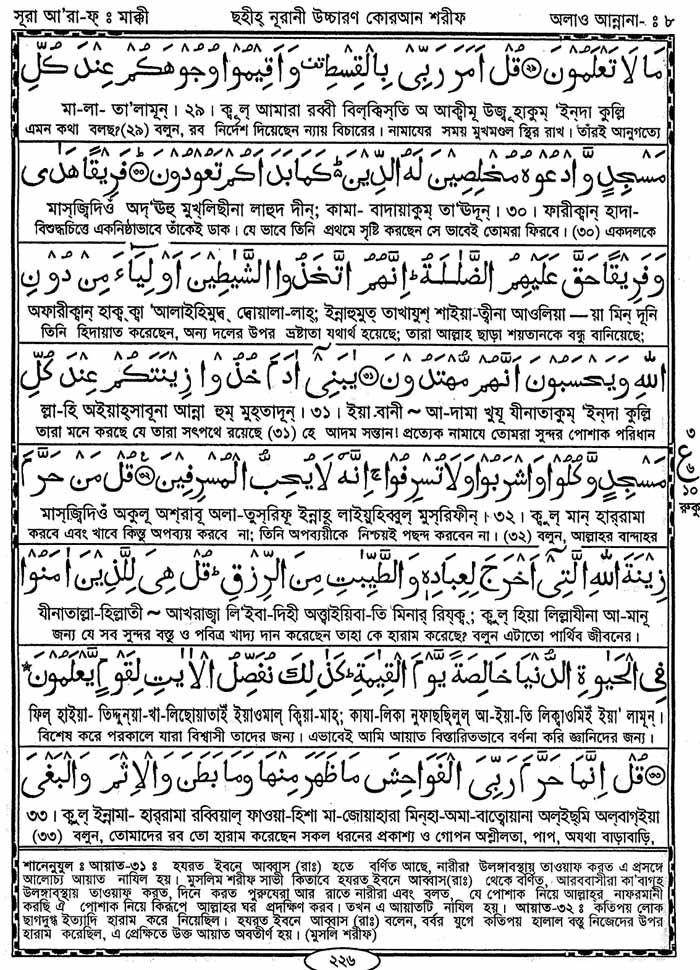 সূরা আ'রা-ফ্ ঃ মাক্কী
ছহীহ্ নূরানী উচ্চারণ কোরআন শরীফ
অলাও আন্নানা- ঃ ৮
مَا لَا تَعْلَمُوْنَ ﴿۲۸﴾ قُلْ اَمَرَ رَبِّىْ بِالْقِسْطِ وَاَقِيْمُوْا وُجُوْهَكُمْ عِنْدَ كُلِّ
মা-লা- তা'লামূন্। ২৯। কু্ল্ আমারা রব্বী বিল্‌ক্বিস্‌তি অ আক্বীমূ উজূ হাকুম্ 'ইন্‌দা কুল্লি
এমন কথা বলছ?(২৯) বলুন, রব নির্দেশ দিয়েছেন ন্যায় বিচারের। নামাযের সময় মুখমণ্ডল স্থির রাখ। তাঁরই আনুগত্যে
مَسْجِدٍ وَّادْعُوْهُ مُخْلِصِيْنَ لَهُ الدِّيْنَ كَمَا بَدَاَكُمْ تَعُوْدُوْنَ ﴿۲۹﴾ فَرِيْقًا هَدٰى
মাস্‌জ্বিদিওঁ অদ্'ঊহু মুখ্‌লিছীনা লাহুদ দীন্; কামা- বাদায়াকুম্ তা'ঊদূন্। ৩০। ফারীক্বান্ হাদা-
বিশুদ্ধচিত্তে একনিষ্ঠাভাবে তাঁকেই ডাক। যে ভাবে তিনি প্রথমে সৃষ্টি করছেন সে ভাবেই তোমরা ফিরবে। (৩০) একদলকে
وَفَرِيْقًا حَقَّ عَلَيْهِمُ الضَّلٰلَةُ اِنَّهُمُ اتَّخَذُوا الشَّيٰطِيْنَ اَوْلِيَآءَ مِنْ دُوْنِ
অফারীক্বান্ হাক্ব্ ক্বা 'আলাইহিমুদ্ব্ দ্বোয়ালা-লাহ্; ইন্নাহুমুত্ তাখাযুশ্ শাইয়া-ত্বীনা আওলিয়া —য়া মিন্ দূনি
তিনি হিদায়াত করেছেন, অন্য দলের উপর ভ্রষ্টাতা যথার্থ হয়েছে; তারা আল্লাহ ছাড়া শয়তানকে বন্ধু বানিয়েছে;
اللّٰهِ وَيَحْسَبُوْنَ اَنَّهُمْ مُّهْتَدُوْنَ ﴿۳۰﴾ يٰبَنِىْٓ اٰدَمَ خُذُوْا زِيْنَتَكُمْ عِنْدَ كُلِّ
ল্লা-হি অইয়াহ্‌সাবূনা আন্না হুম্ মুহ্‌তাদূন্। ৩১। ইয়া বানী ~ আ-দামা খুযূ যীনাতাকুম্ 'ইন্‌দা কুল্লি
তারা মনে করছে যে তারা সৎপথে রয়েছে (৩১) হে আদম সন্তান! প্রত্যেক নামাযে তোমরা সুন্দর পোশাক পরিধান
مَسْجِدٍ وَّكُلُوْا وَاشْرَبُوْا وَلَا تُسْرِفُوْا اِنَّهٗ لَا يُحِبُّ الْمُسْرِفِيْنَ ﴿۳۱﴾ قُلْ مَنْ حَرَّمَ
মাস্‌জ্বিদিওঁ অকুলূ অশ্‌রাবূ অলা-তুস্‌রিফূ ইন্নাহূ লাইয়ুহিব্বুল্ মুস্‌রিফীন্। ৩২। কু্ল্ মান্ হার্‌রামা
করবে এবং খাবে কিন্তু অপব্যয় করবে না; তিনি অপব্যয়ীকে নিশ্চয়ই পছন্দ করবেন না। (৩২) বলুন, আল্লাহর বান্দাহর
৩
ع
১০
রুকু
زِيْنَةَ اللّٰهِ الَّتِىْٓ اَخْرَجَ لِعِبَادِهٖ وَالطَّيِّبٰتِ مِنَ الرِّزْقِ قُلْ هِىَ لِلَّذِيْنَ اٰمَنُوْا
যীনাতাল্লা-হিল্লাতী ~ আখ্‌রাজ্বা লি'ইবা-দিহী অত্ত্বাইয়িবা-তি মিনার্ রিয্‌ক্ব্; কু্ল্ হিয়া লিল্লাযীনা আ-মানূ
জন্য যে সব সুন্দর বস্তু ও পবিত্র খাদ্য দান করেছেন তাহা কে হারাম করেছে? বলুন এটাতো পার্থিব জীবনের।
فِى الْحَيٰوةِ الدُّنْيَا خَالِصَةً يَّوْمَ الْقِيٰمَةِ كَذٰلِكَ نُفَصِّلُ الْاٰيٰتِ لِقَوْمٍ يَّعْلَمُوْنَ
ফিল্ হাইয়া- তিদ্দুন্‌য়া-খা-লিছোয়াতাইঁ ইয়াওমাল্ ক্বিয়া-মাহ্; কাযা-লিকা নুফাছ্‌ছিলুল্ আ-ইয়া-তি লিক্বাওমিইঁ ইয়া' লামূন্।
বিশেষ করে পরকালে যারা বিশ্বাসী তাদের জন্য। এভাবেই আমি আয়াত বিস্তারিতভাবে বর্ণনা করি জ্ঞানিদের জন্য।
﴿۳۲﴾ قُلْ اِنَّمَا حَرَّمَ رَبِّىَ الْفَوَاحِشَ مَا ظَهَرَ مِنْهَا وَمَا بَطَنَ وَالْاِثْمَ وَالْبَغْىَ
৩৩। কু্ল্ ইন্নামা- হার্‌রামা রব্বিয়াল্ ফাওয়া-হিশা মা-জোয়াহারা মিন্‌হা-অমা-বাত্বোয়ানা অল্‌ইছ্‌মি অল্‌বাগ্‌ইয়া
(৩৩) বলুন, তোমাদের রব তো হারাম করেছেন সকল ধরনের প্রকাশ্য ও গোপন অশ্লীলতা, পাপ, অযথা বাড়াবাড়ি,
শানেনুযুল ঃ আয়াত-৩১ ঃ হযরত ইবনে আব্বাস (রাঃ) হতে বর্ণিত আছে, নারীরা উলঙ্গাবস্থায় তাওয়াফ করত এ প্রসঙ্গে
আলোচ্য আয়াত নাযিল হয়। মুসলিম শরীফ সাভী কিতাবে হযরত ইবনে আব্বাস(রাঃ) থেকে বর্ণিত, আরববাসীরা কা'বাগৃহ
উলঙ্গাবস্থায় তাওয়াফ করত, দিনে করত পুরুষেরা আর রাতে নারীরা এবং বলত, যে পোশাক নিয়ে আল্লাহর নাফরমানী
করছি ঐ পোশাক নিয়ে কিরূপে আল্লাহর ঘর প্রদক্ষিণ করব। তখন এ আয়াতটি নাযিল হয়। আয়াত-৩২ ঃ কতিপয় লোক
ছাগদুগ্ধ ইত্যাদি হারাম করে নিয়েছিল। হযরত ইবনে আব্বাস (রাঃ) বলেন, বর্বর যুগে কতিপয় হালাল বস্তু নিজেদের উপর
হারাম করেছিল, এ প্রেক্ষিতে উক্ত আয়াত অবতীর্ণ হয়। (মুসলি শরীফ)
২২৬